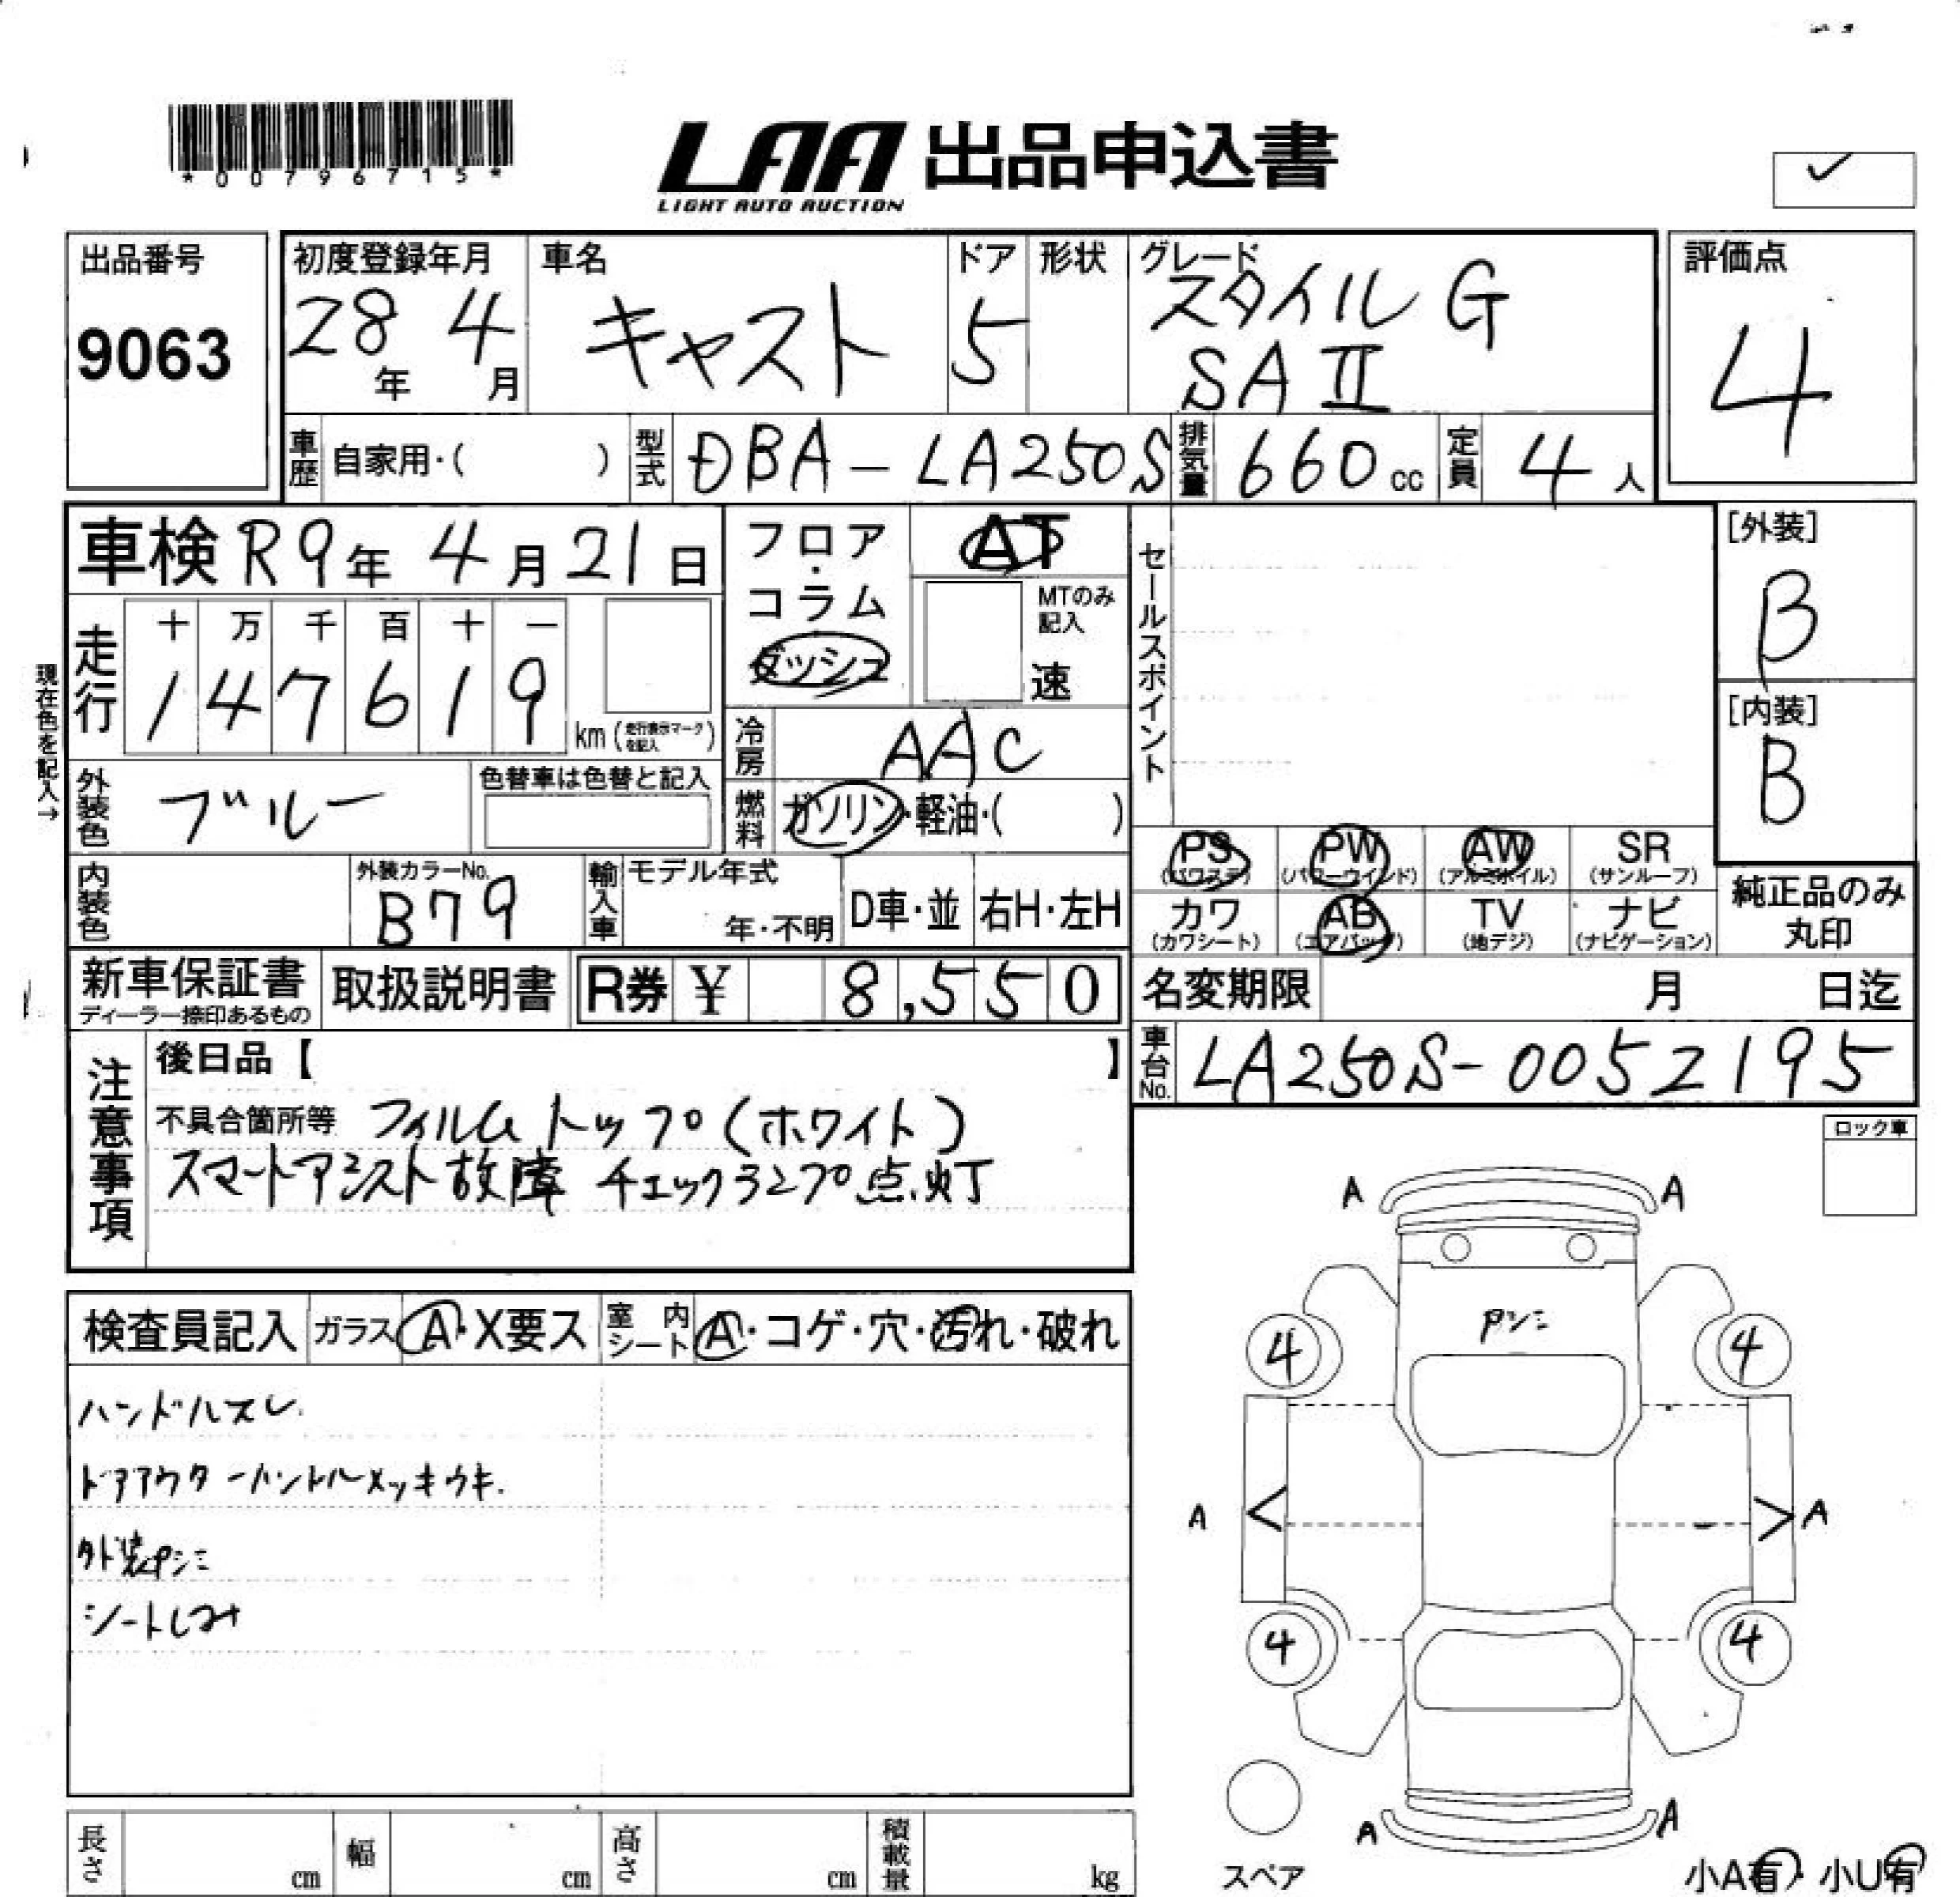 *00796715*
LAA 出品申込書
LIGHT AUTO AUCTION
✓
出品番号
9063
初度登録年月
28年 4月
車名
キャスト
ドア
5
形状
グレード
スタイル G
SA II
評価点
4
車歴 自家用・( )
型式 DBA-LA250S
排気量 660cc
定員 4人
車検 R9年 4月 21日
フロア・コラム
ダッシュ
AT
MTのみ記入
速
セールスポイント
[外装]
B
[内装]
B
現在色を記入→
走行
十 万 千 百 十 一
1 4 7 6 1 9
km(走行表示マークを記入)
冷房 AAC
外装色 ブルー
色替車は色替と記入
燃料 ガソリン・軽油・( )
PS (パワステ)
PW (パワーウインド)
AW (アルミホイル)
SR (サンルーフ)
カワ (カワシート)
AB (エアバッグ)
TV (地デジ)
ナビ (ナビゲーション)
純正品のみ
丸印
内装色
外装カラーNo.
B79
輸入車
モデル年式
年・不明
D車・並
右H・左H
新車保証書
ディーラー捺印あるもの
取扱説明書
R券 ¥ 8,550
名変期限 月 日迄
車台No. LA250S-0052195
注意事項
後日品【 】
不具合箇所等 フィルムトップ(ホワイト)
スマートアシスト故障 チェックランプ点灯
ロック車
検査員記入
ガラス A・X要ス
室内シート A・コゲ・穴・汚れ・破れ
ハンドルスレ
ドアアウターハンドルメッキウキ.
外装Pシミ
シートしみ
A A
Pシミ
4 4
A < > A
4 4
A A
スペア
小A有・小U有
長さ cm
幅 cm
高さ cm
積載量 kg